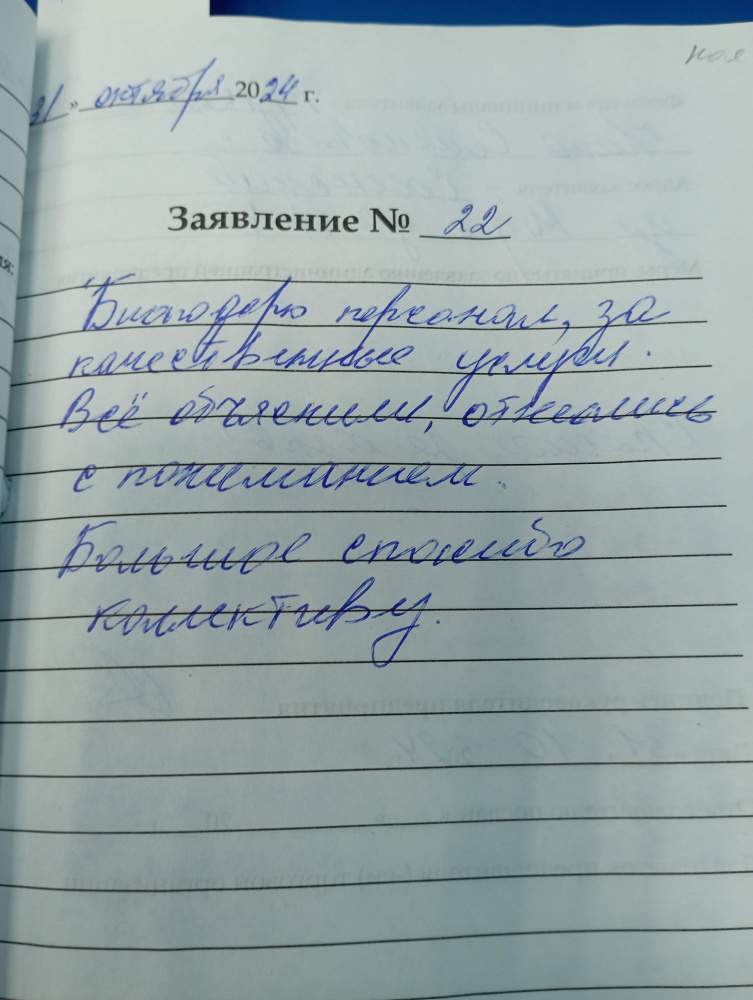 31 » октября 2024 г.
Заявление № 22
Благодарю персонал, за
качественные услуги.
Всё объяснили, отнеслись
с пониманием.
Большое спасибо
коллективу.